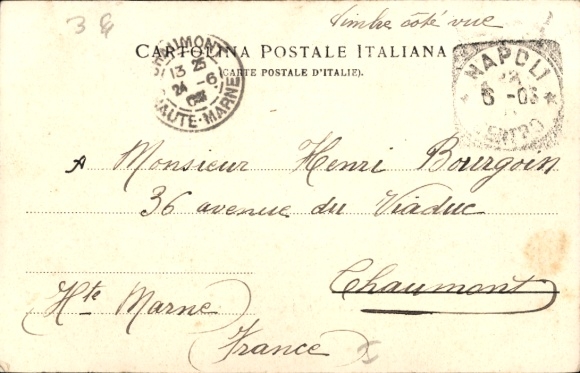 3
Timbre côté vue
CARTOLINA POSTALE ITALIANA
(CARTE POSTALE D'ITALIE).
CHAUMONT
13 25
24 - 6
03
HAUTE-MARNE
NAPOLI
6 - 03
CENTRO
A Monsieur Henri Bourgoin
36 avenue du Viaduc
Chaumont
(Hte Marne)
(France)